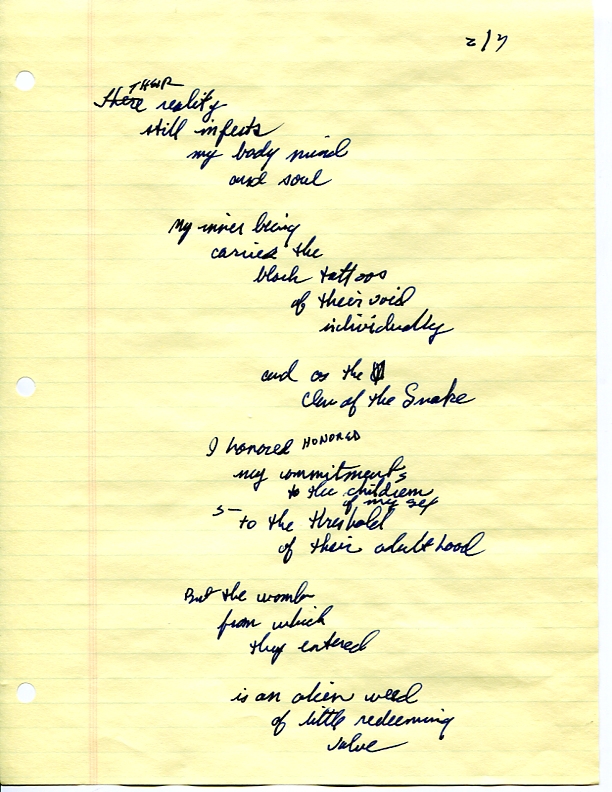 2/7
THEIR
there reality
still infects
my body mind
and soul
My inner being
carries the
black tattoos
of their void
individually
and as the
Clan of the Snake
I honored HONORED
my commitments
to the children
of my sex
5- to the threshold
of their adulthood
But the womb
from which
they entered
is an alien weed
of little redeeming
value